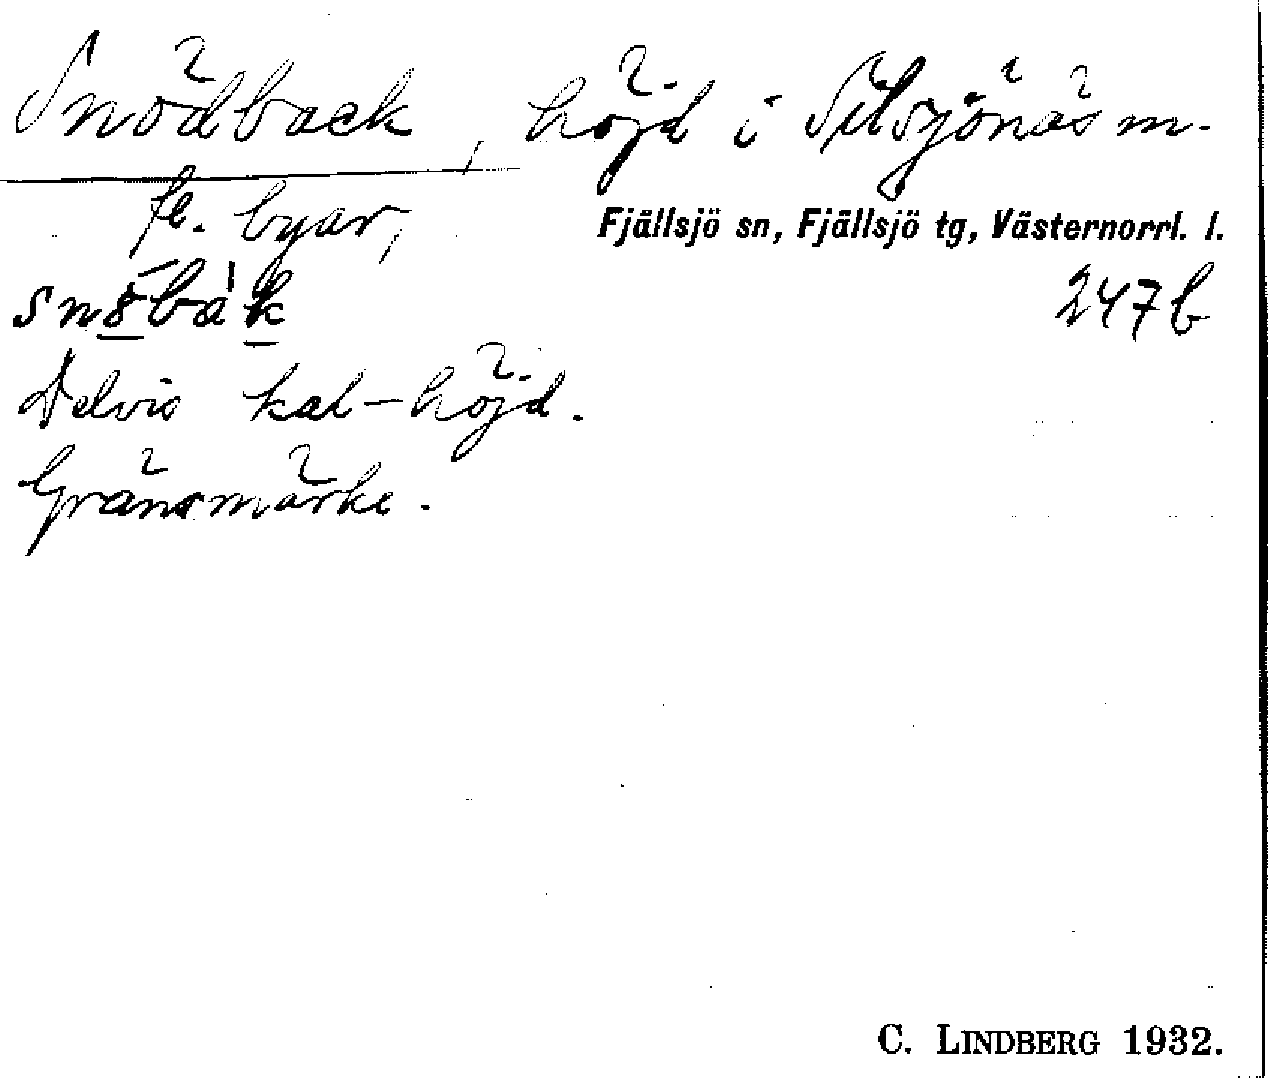 Snödback, höjd i Silsjönäs m.
fl. byar,
Fjällsjö sn, Fjällsjö tg, Västernorrl. l.
247b
Delvis kal-höjd.
Gränsmärke.
C. LINDBERG 1932.